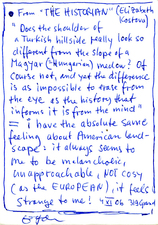 • From "THE HISTORIAN" (Elizabeth
Kostova)
"Does the shoulder of
a Turkish hillside really look so
different from the slope of a
Magyar (Hungarian) medow? Of
course not, and yet the difference
is as impossible to erase from
the eye as the history that
informs it is from the mind"
= i have the absolute same
feeling about American land-
scape: it always seems to
me to be melancholic,
unapproachable, NOT cosy
(as the EUROPEAN), it feels
strange to me! 4 XI 06